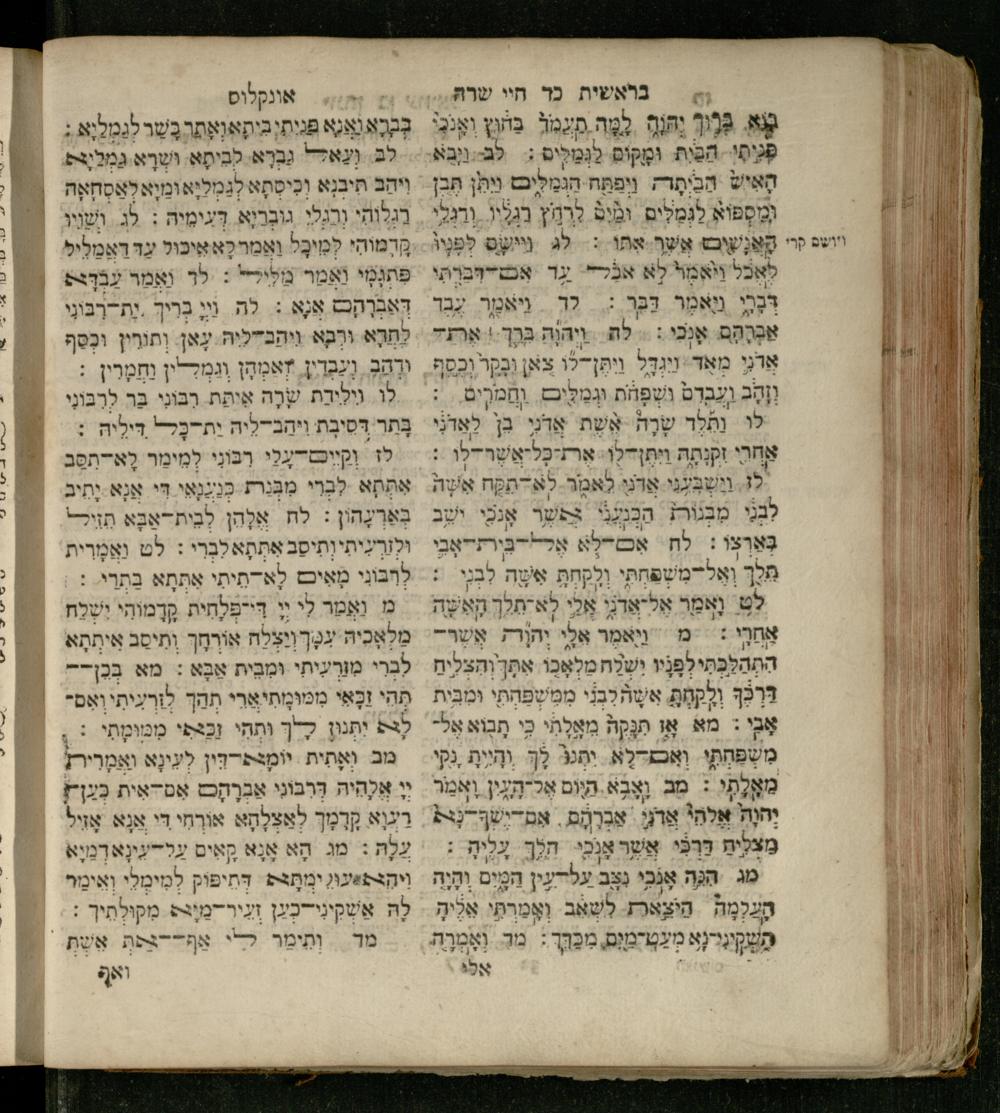 בראשית כד חיי שרה
בֹּא בְּרוּךְ יְהוָֹה לָמָּה תַעֲמֹד בַּחוּץ וְאָנֹכִי
פִּנִּיתִי הַבַּיִת וּמָקוֹם לַגְּמַלִּים : לב וַיָּבֹא
הָאִישׁ הַבַּיְתָה וַיְפַתַּח הַגְּמַלִּים וַיִּתֵּן תֶּבֶן
וּמִסְפּוֹא לַגְּמַלִּים וּמַיִם לִרְחֹץ רַגְלָיו וְרַגְלֵי
הָאֲנָשִׁים אֲשֶׁר אִתּוֹ : לג וַיִּישֶׂם לְפָנָיו
ויושם קרי
לֶאֱכֹל וַיֹּאמֶר לֹא אֹכַל עַד אִם־דִּבַּרְתִּי
דְּבָרָי וַיֹּאמֶר דַּבֵּר : לד וַיֹּאמַר עֶבֶד
אַבְרָהָם אָנֹכִי : לה וַיהוָֹה בֵּרַךְ אֶת־
אֲדֹנִי מְאֹד וַיִּגְדָּל וַיִּתֶּן־לוֹ צֹאן וּבָקָר וְכֶסֶף
וְזָהָב וַעֲבָדִם וּשְׁפָחֹת וּגְמַלִּים וַחֲמֹרִים :
לו וַתֵּלֶד שָׂרָה אֵשֶׁת אֲדֹנִי בֵן לַאדֹנִי
אַחֲרֵי זִקְנָתָהּ וַיִּתֶּן־לוֹ אֶת־כָּל־אֲשֶׁר־לוֹ :
לז וַיַּשְׁבִּעֵנִי אֲדֹנִי לֵאמֹר לֹא־תִקַּח אִשָּׁה
לִבְנִי מִבְּנוֹת הַכְּנַעֲנִי אֲשֶׁר אָנֹכִי יֹשֵׁב
בְּאַרְצוֹ : לח אִם־לֹא אֶל־בֵּית־אָבִי
תֵּלֵךְ וְאֶל־מִשְׁפַּחְתִּי וְלָקַחְתָּ אִשָּׁה לִבְנִי :
לט וָאֹמַר אֶל־אֲדֹנִי אֻלַי לֹא־תֵלֵךְ הָאִשָּׁה
אַחֲרָי : מ וַיֹּאמֶר אֵלָי יְהוָֹה אֲשֶׁר־
הִתְהַלַּכְתִּי לְפָנָיו יִשְׁלַח מַלְאָכוֹ אִתָּךְ וְהִצְלִיחַ
דַּרְכֶּךָ וְלָקַחְתָּ אִשָּׁה לִבְנִי מִמִּשְׁפַּחְתִּי וּמִבֵּית
אָבִי : מא אָז תִּנָּקֶה מֵאָלָתִי כִּי תָבוֹא אֶל־
מִשְׁפַּחְתִּי וְאִם־לֹא יִתְּנוּ לָךְ וְהָיִיתָ נָקִי
מֵאָלָתִי : מב וָאָבֹא הַיּוֹם אֶל־הָעָיִן וָאֹמַר
יְהוָֹה אֱלֹהֵי אֲדֹנִי אַבְרָהָם אִם־יֶשְׁךָ־נָּא
מַצְלִיחַ דַּרְכִּי אֲשֶׁר אָנֹכִי הֹלֵךְ עָלֶיהָ :
מג הִנֵּה אָנֹכִי נִצָּב עַל־עֵין הַמָּיִם וְהָיָה
הָעַלְמָה הַיֹּצֵאת לִשְׁאֹב וְאָמַרְתִּי אֵלֶיהָ
הַשְׁקִינִי־נָא מְעַט־מַיִם מִכַּדֵּךְ : מד וְאָמְרָה
אלי
אונקלוס
בְּבָרָא וַאֲנָא פַּנֵּיתִי בֵיתָא וַאֲתַר כָּשַׁר לְגַמְלַיָּא :
לב וְעַאל גַּבְרָא לְבֵיתָא וּשְׁרָא גַמְלַיָּא
וִיהַב תִּיבְנָא וְכִיסְתָא לְגַמְלַיָּא וּמַיָּא לְאַסְחָאָה
רַגְלוֹהִי וְרַגְלֵי גוּבְרַיָּא דְּעִימֵיהּ : לג וְשַׁוִּיוּ
קֳדָמוֹהִי לְמֵיכַל וַאֲמַר לָא אֵיכוּל עַד דַּאֲמַלֵּיל
פִּתְגָּמָי וַאֲמַר מַלֵּיל : לד וַאֲמַר עַבְדָּא
דְּאַבְרָהָם אֲנָא : לה וַיְיָ בָּרִיךְ יָת־רִבּוֹנִי
לַחֲדָא וּרְבָא וִיהַב־לֵיהּ עָאן וְתוֹרִין וּכְסַף
וּדְהַב וְעַבְדִין וְאַמְהָן וְגַמְלִין וַחֲמָרִין :
לו וִילִידַת שָׂרָה אִתַּת רִבּוֹנִי בַר לְרִבּוֹנִי
בָּתַר דְּסֵיבַת וִיהַב־לֵיהּ יַת־כָּל דִּילֵיהּ :
לז וְקַיֵּים־עֲלַי רִבּוֹנִי לְמֵימַר לָא־תִסַּב
אִתְּתָא לִבְרִי מִבְּנַת כְּנַעֲנָאֵי דִּי אֲנָא יָתִיב
בְּאַרְעֲהוֹן : לח אֱלָהֵן לְבֵית־אַבָּא תֵּזִיל
וּלְזַרְעִיתִי וְתִיסַּב אִתְּתָא לִבְרִי : לט וַאֲמָרִית
לְרִבּוֹנִי מָאִים לָא־תֵיתֵי אִתְּתָא בַּתְרָי :
מ וַאֲמַר לִי יְיָ דִּי־פְלָחִית קֳדָמוֹהִי יִשְׁלַח
מַלְאֲכֵיהּ עִמָּךְ וְיַצְלַח אוֹרְחָךְ וְתִיסַב אִיתְּתָא
לִבְרִי מִזַּרְעִיתִי וּמִבֵּית אַבָּא : מא בְּכֵן־
תְּהֵי זַכָּאֵי מִמּוֹמָתִי אֲרֵי תְהַךְ לְזַרְעִיתִי וְאִם־
לָא יִתְּנוּן לָךְ וּתְהֵי זַכָּאֵי מִמּוֹמָתִי :
מב וַאֲתִית יוֹמָא־דֵין לְעֵינָא וַאֲמָרִית
יְיָ אֱלָהֵיהּ דְּרִבּוֹנִי אַבְרָהָם אִם־אִית כְּעַן־
רַעֲוָא קֳדָמָךְ לְאַצְלָחָא אוֹרְחִי דִּי אֲנָא אָזֵיל
עֲלַהּ : מג הָא אֲנָא קָאִים עַל־עֵינָא דְמַיָּא
וִיהֵא עוּלֵימְתָּא דְּתִיפּוֹק לְמִימְלֵי וְאֵימַר
לָהּ אַשְׁקִינִי־כְעַן זְעֵיר־מַיָּא מִקּוּלְתִיךְ :
מד וְתֵימַר לִי אַף־אַתְּ אֵשְׁתְּ
ואף